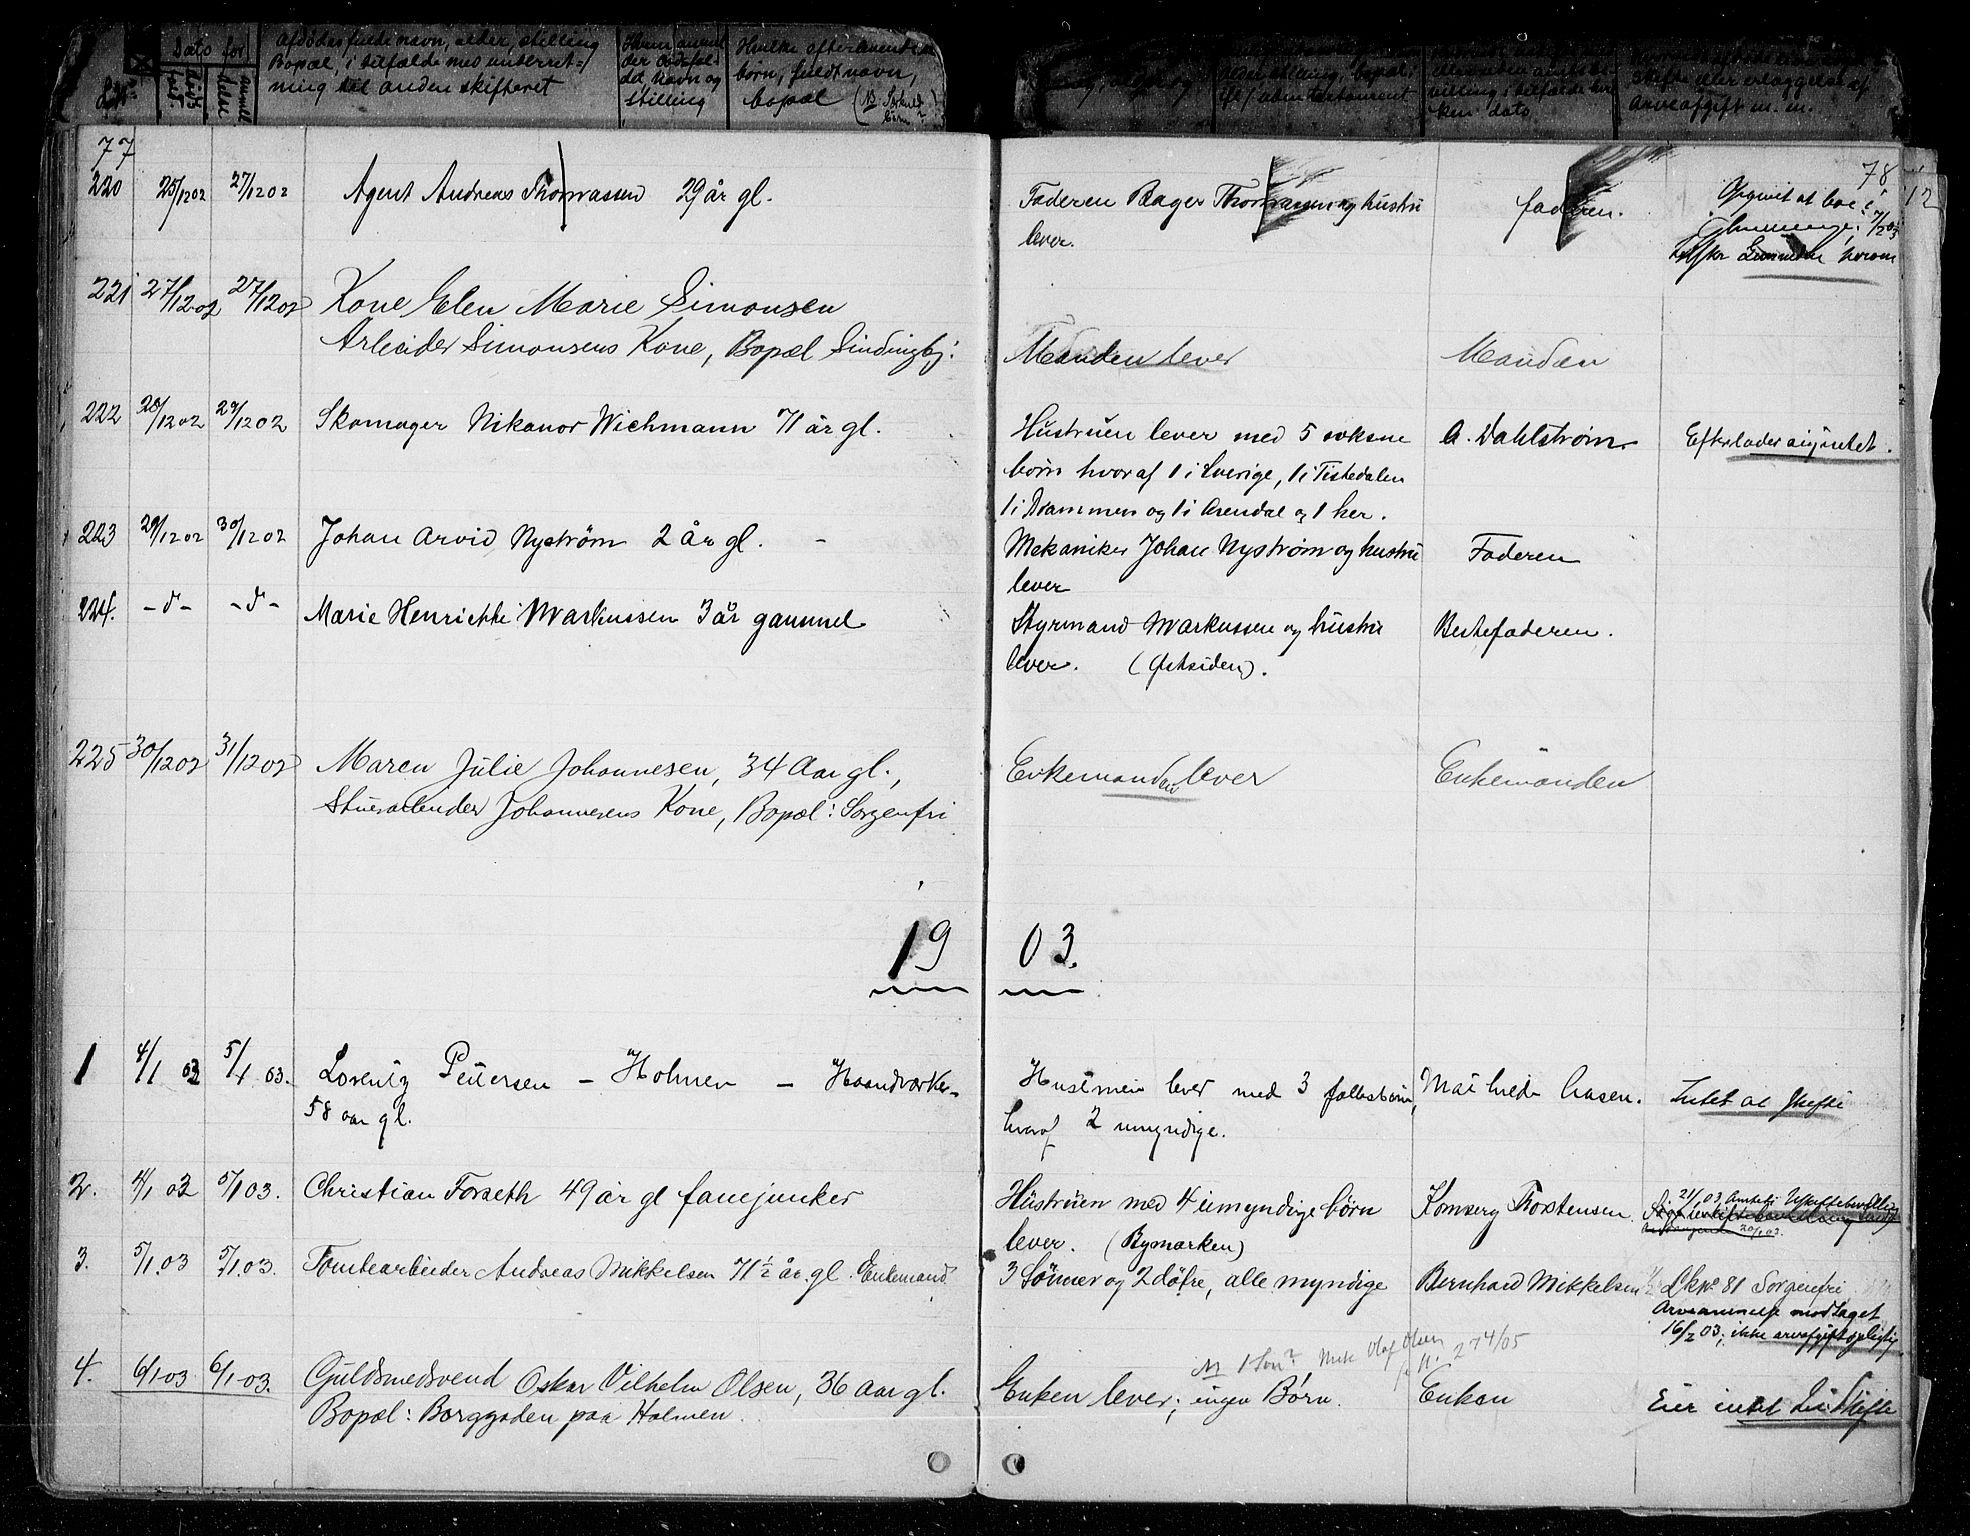 Dato for
afdødes fulde navn, alder, stilling
Bopæl, i tilfælde med underret=
ning til anden skifteret
der dødsfal-
det navn og
stilling
Hvilke efterlevende
børn, fuldt navn,
bopæl (NB Særkuld
arveafgift m. m.
77
78
220 25/12 02 27/12 02 Agent Andreas Thomassen 29 år gl. Faderen Bager Thomassen og hustru faderen. Opgivet at bo i
lever. 7/2 03
221 27/12 02 27/12 02 Kone Elen Marie Simonsen
Arbeider Simonsens Kone, Bopæl Sindingbj: Manden lever Manden
222 28/12 02 29/12 02 Skomager Nikanor Wichmann 71 år gl. Hustruen lever med 5 voksne A. Dahlstrøm Efterlader sig intet.
børn hvoraf 1 i Sverige, 1 i Tistedalen
1 i Drammen og 1 i Arendal og 1 her.
223 29/12 02 30/12 02 Johan Arvid Nystrøm 2 år gl. - Mekaniker Johan Nystrøm og hustru Faderen
lever
224. -d- -d- Marie Henriette Markussen 3 år gammel Styrmand Markussen og hustru Bestefaderen.
lever. (Østsiden).
225 30/12 02 31/12 02 Maren Julie Johannesen, 34 Aar gl., Enkemanden lever Enkemanden
Stuearbeider Johannesens Kone, Bopæl: Sorgenfri
19 03.
1 4/1 03 5/1 03. Lorentz Pettersen - Holmen - Haandværker- Hustruen lever med 3 fællesbørn, Mathilde Aasen. Intet at skifte
58 aar gl. hvoraf 2 umyndige.
2. 4/1 03 5/1 03. Christian Forseth 49 år gl fanejunker Hustruen med 4 umyndige børn Komserg Thorstensen. 21/1 03 Anmeldt Uskiftebevilling
lever. (Bymarken) 20/1 03.
3. 5/1.03 5/1.03. Tomtearbeider Andreas Mikkelsen 71 ½ år. gl. Enkemand 3 Sønner og 2 døtre, alle myndige Bernhard Mikkelsen Lk No 81 Sorgenfri
Arveanmelse modtaget
16/2 03; ikke arveafgiftspligtig
NB 1 Søn? Olaf Olsen
No. 274/05
4. 6/1 03 6/1.03. Guldsmedsvend Oskar Vilhelm Olsen, 36 Aar gl. Enken lever; ingen Børn. Enken Eier intet til Skifte
Bopæl: Borggaden paa Holmen.
12